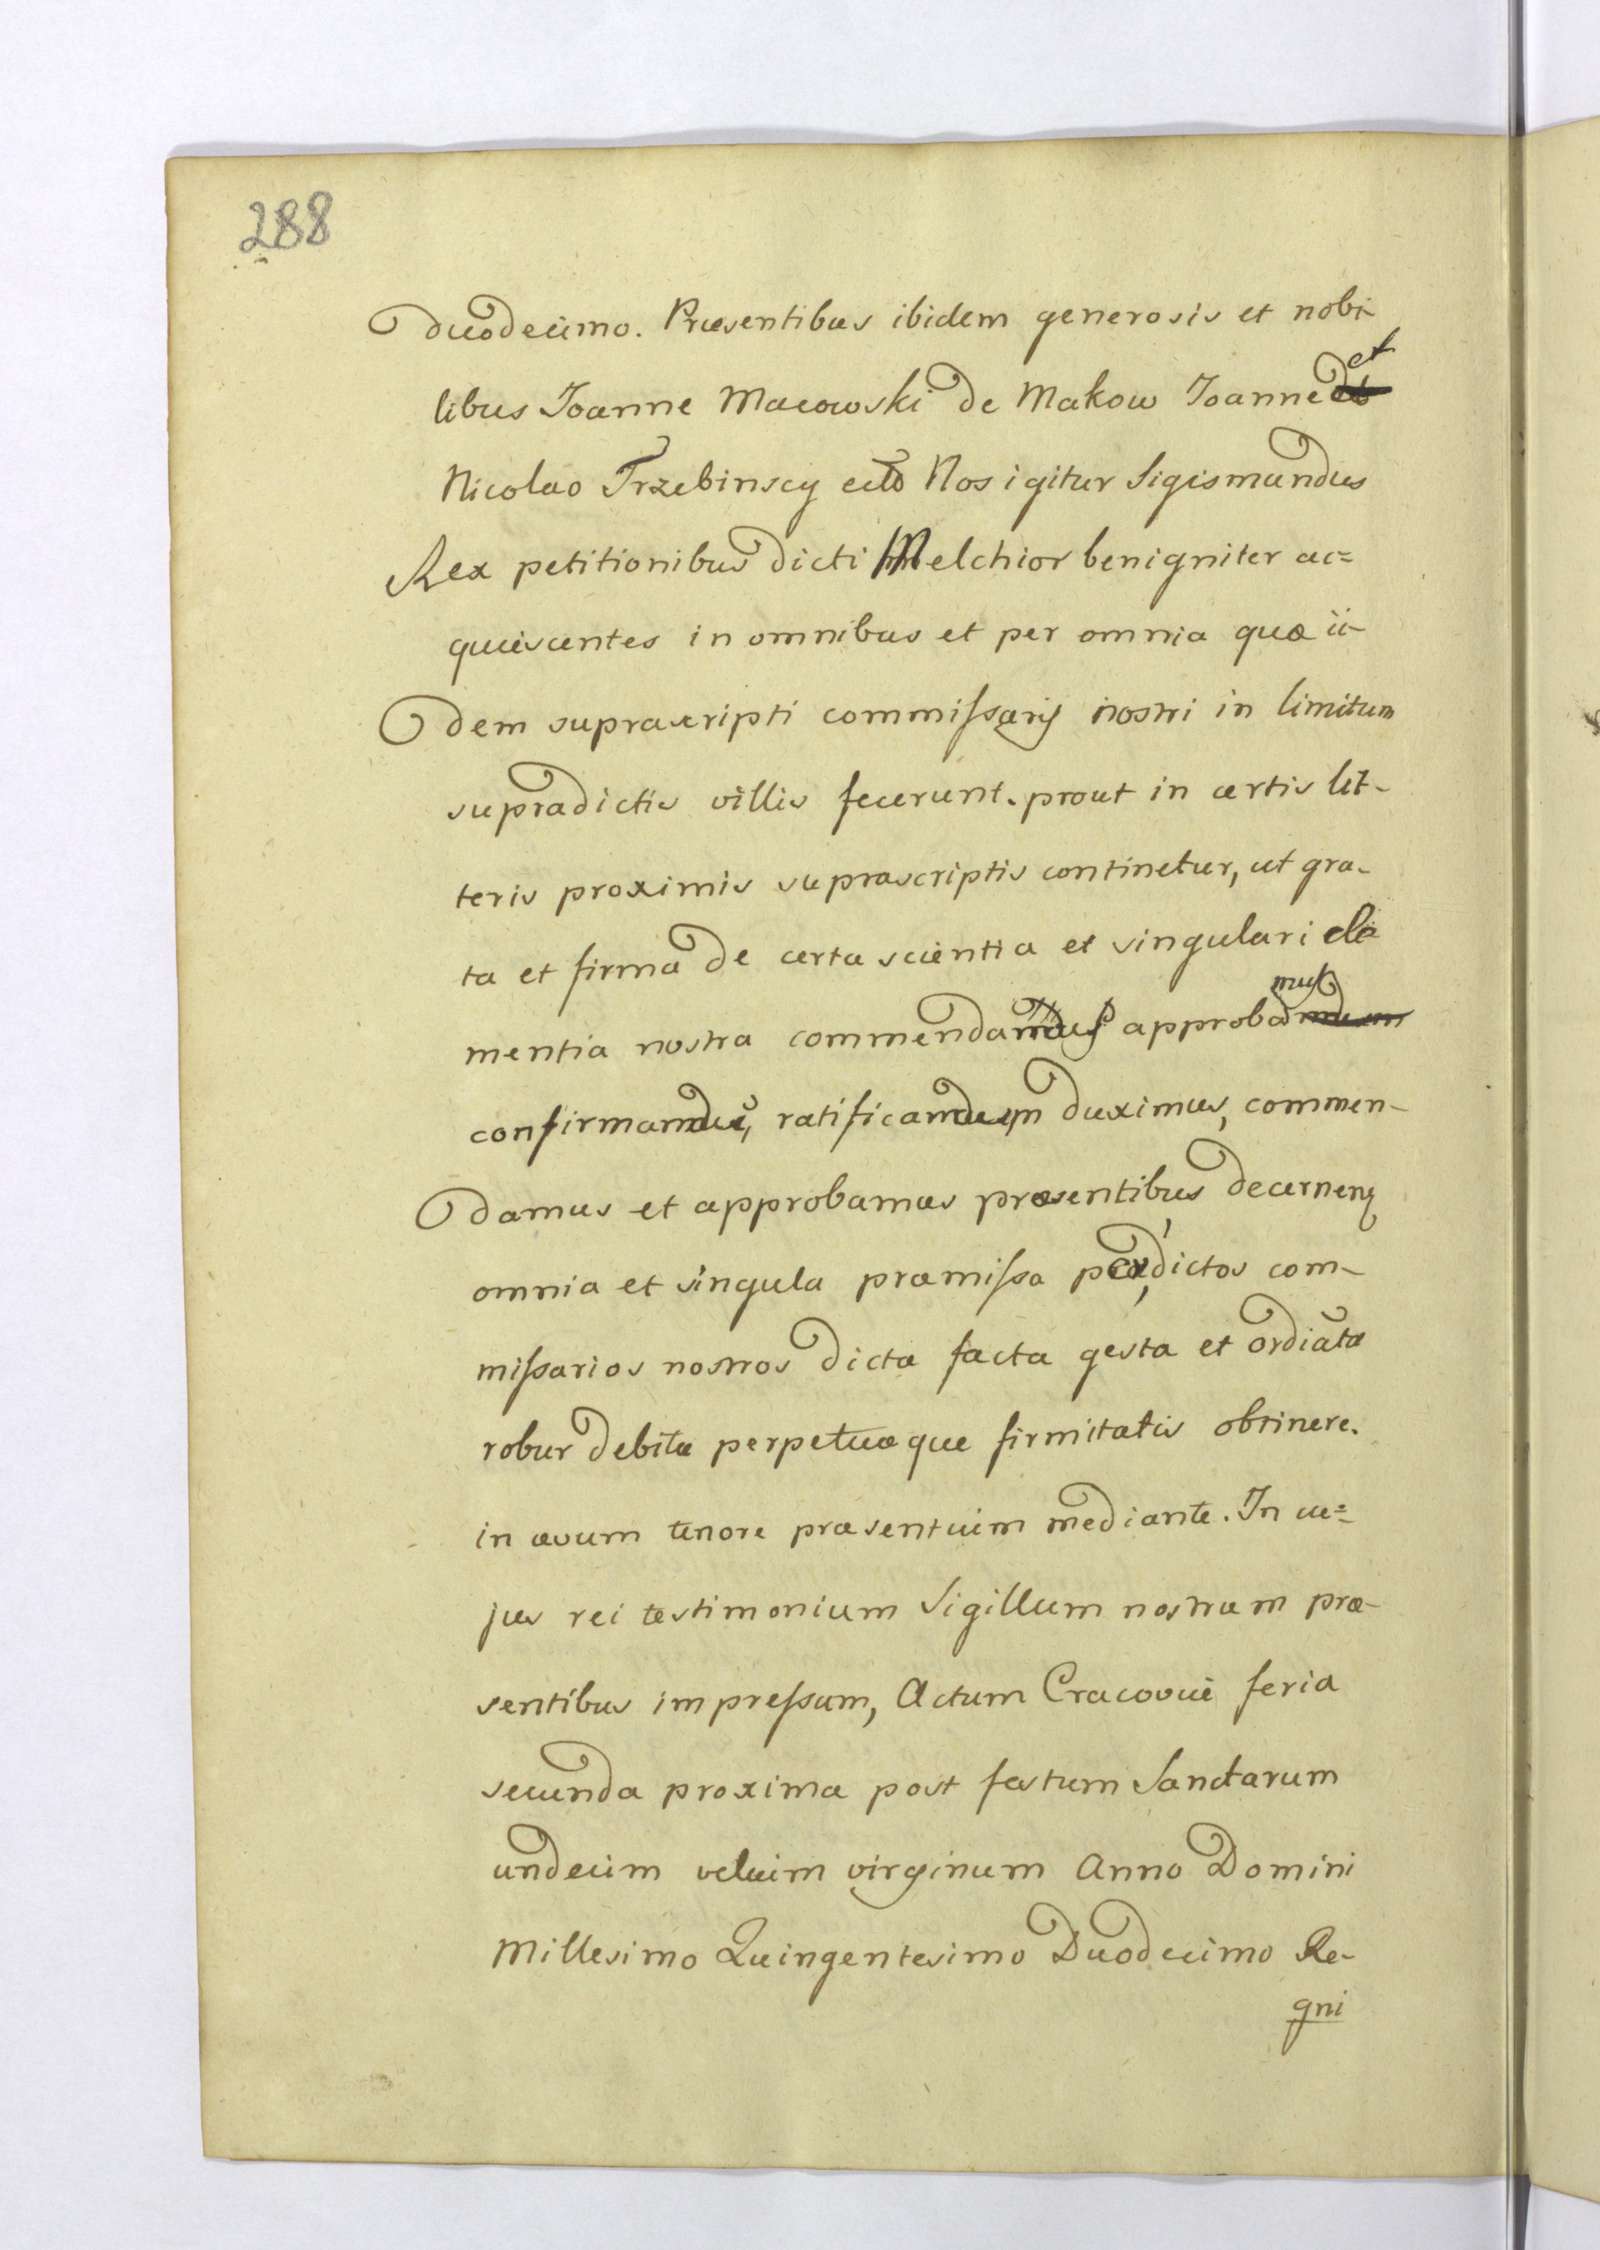 288
duodecimo. Præsentibus ibidem generosis et nobi-
libus Joanne Macowski de Makow Joanne et
Nicolao Trzebinscy Nos igitur Sigismundus
Rex petitionibus dicti Melchior benigniter ac=
quiescentes in omnibus et per omnia quæ ii-
dem suprascripti commissarij nostri in limitum
supradictis villis fecerunt. prout in certis lit-
teris proximis suprascriptis continetur, ut gra-
ta et firma de certa scientia et singulari cle
mentia nostra approbamus
ratificandum duximus, commen-
damus et approbamus præsentibus decernenq
omnia et singula præmissa dictos com-
missarios nostros dicta facta gesta et ordiata
robur debitæ perpetuæque firmitatis obtinere.
in ævum tenore præsentium mediante. In cu=
jus rei testimonium Sigillum nostrum præ-
sentibus impressum, Actum Cracoviæ feria
secunda proxima post festum Sanctarum
undecim virginum Anno Domini
Millesimo Quingentesimo Duodecimo Re-
gni